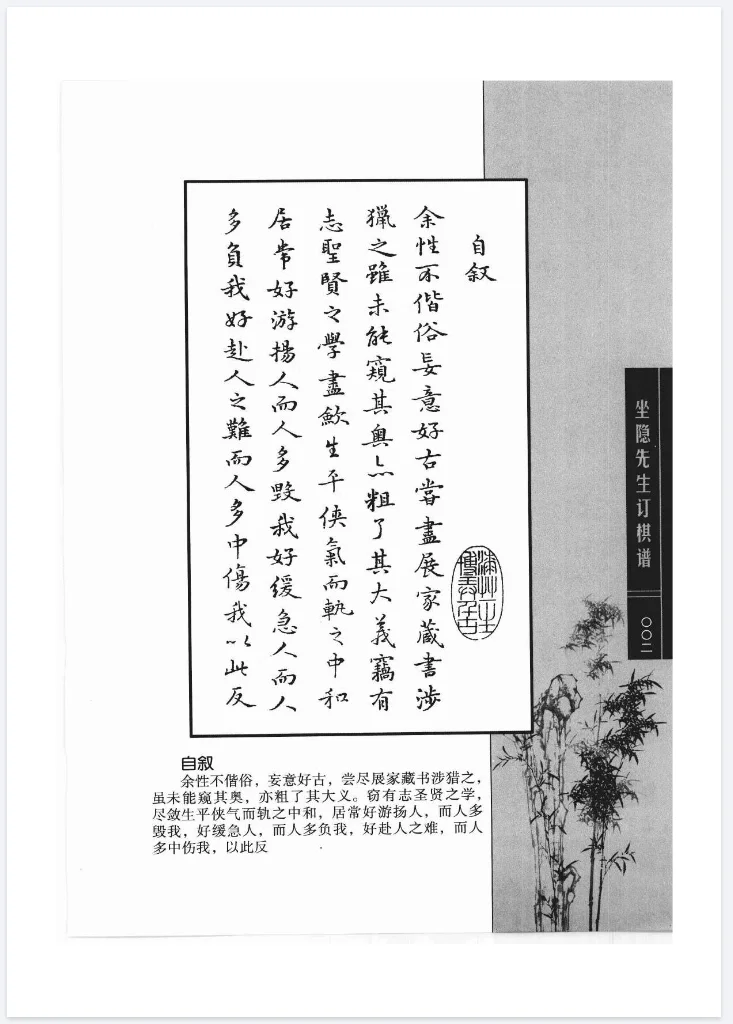 自叙
余性不偕俗妄意好古嘗盡展家蔵書渉
獵之雖未能窺其奥亦粗了其大義竊有
志聖賢之學盡歛生平俠氣而軌之中和
居常好游揚人而人多毀我好緩急人而人
多負我好赴人之難而人多中傷我以此反
坐隐先生订棋谱
〇〇二
自叙
余性不偕俗，妄意好古，尝尽展家藏书涉猎之，
虽未能窥其奥，亦粗了其大义。窃有志圣贤之学，
尽敛生平侠气而轨之中和，居常好游扬人，而人多
毁我，好缓急人，而人多负我，好赴人之难，而人
多中伤我，以此反